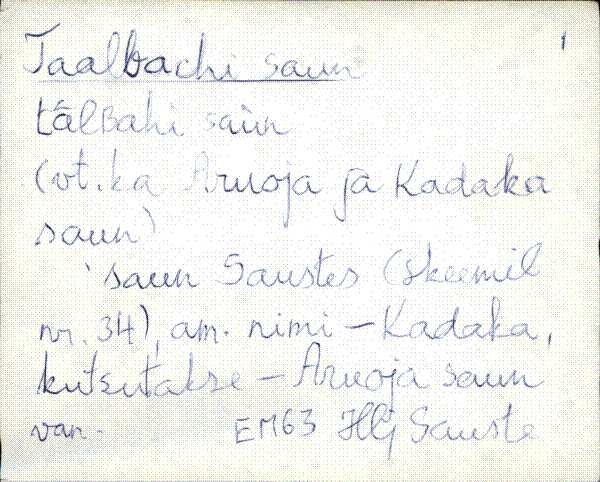 1
Taalbachi saun
tālBahi saùn
(vt. ka Aruoja ja Kadaka
saun)
'saun Saustes (skeemil
nr. 34), am. nimi – Kadaka,
kutsutakse – Aruoja saun
van. EM63 HlJ Sauste